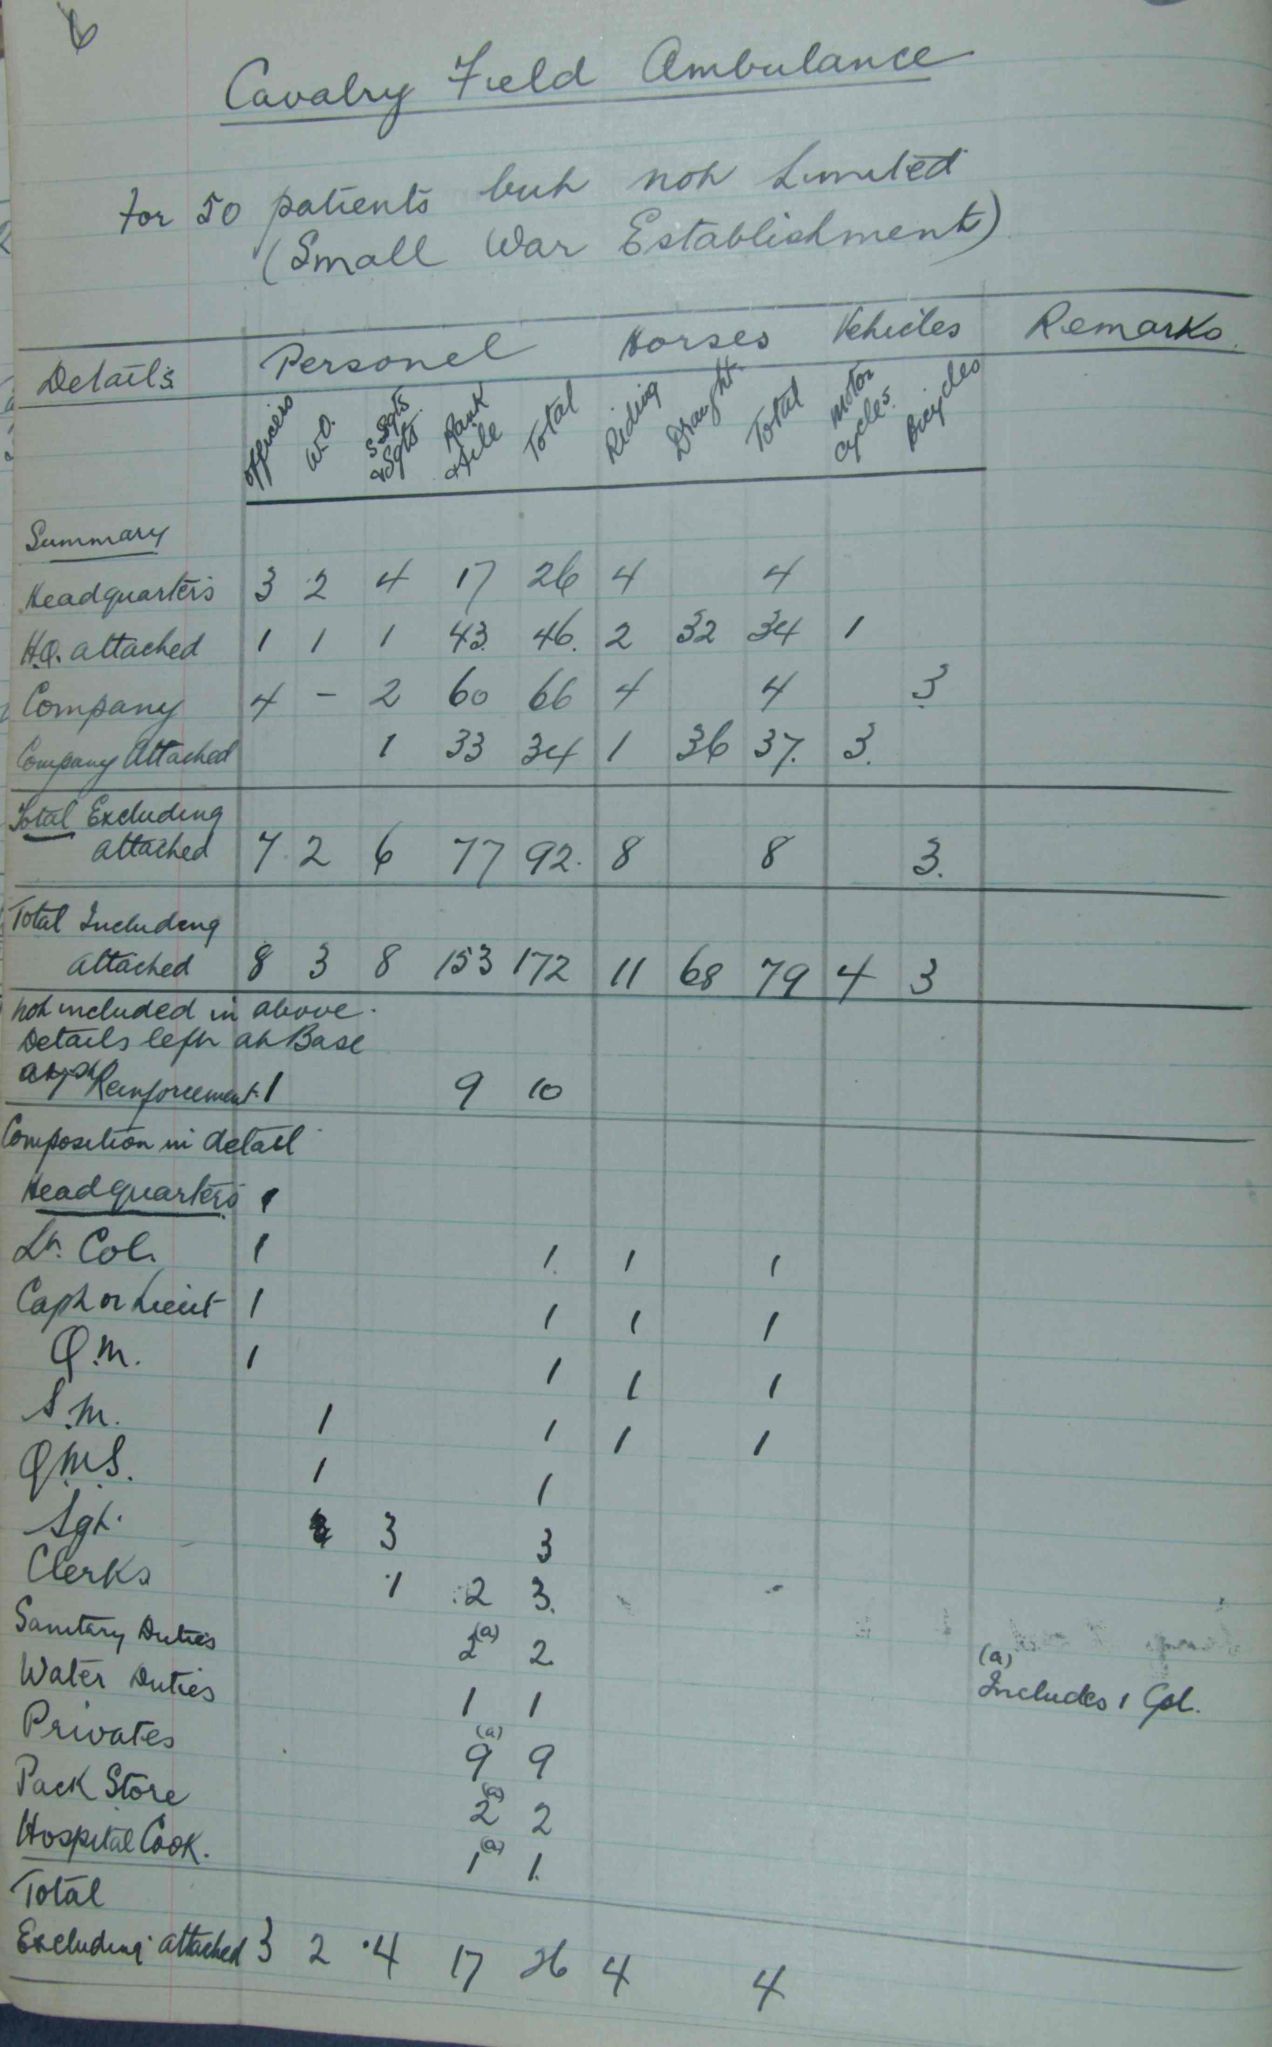 6
Cavalry Field Ambulance
For 50 patients but not Limited
(Small War Establishment)
Details Personel Horses Vehicles Remarks
Officers W.O. S Sgts & Sgts Rank & File Total Riding Draught Total Motor Cycles Bicycles
Summary
Headquarters 3 2 4 17 26 4 4
H.Q. attached 1 1 1 43 46 2 32 34 1
Company 4 - 2 60 66 4 4 3
Company Attached 1 33 34 1 36 37 3
Total Excluding
attached 7 2 6 77 92 8 8 3
Total Including
attached 8 3 8 153 172 11 68 79 4 3
not included in above
Details left at Base
Reinforcement 1 9 10
Composition in detail
Headquarters 1
Lt. Col. 1 1 1 1
Capt or Lieut 1 1 1 1
Q.M. 1 1 1 1
S.M. 1 1 1 1
Q.M.S. 1 1
Sgt. 3 3
Clerks 1 2 3
Sanitary Duties 2 (a) 2
Water Duties 1 1
(a) Includes 1 Cpl.
Privates 9 (a) 9
Pack Store 2 (a) 2
Hospital Cook. 1 (a) 1
Total
Excluding attached 3 2 4 17 26 4 4